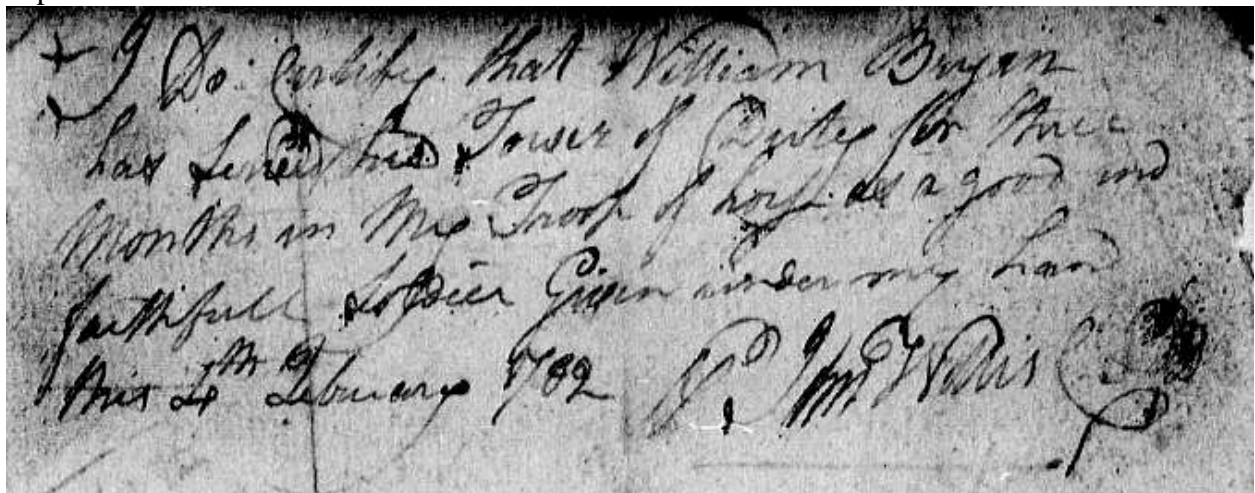 I Do Certify that William Bryan
has Served his Tower of Duty for three
Months in My Troop of horse as a good and
faithfull Soldier Given under my hand
this 4th Febuary 1782 Jno. Willis